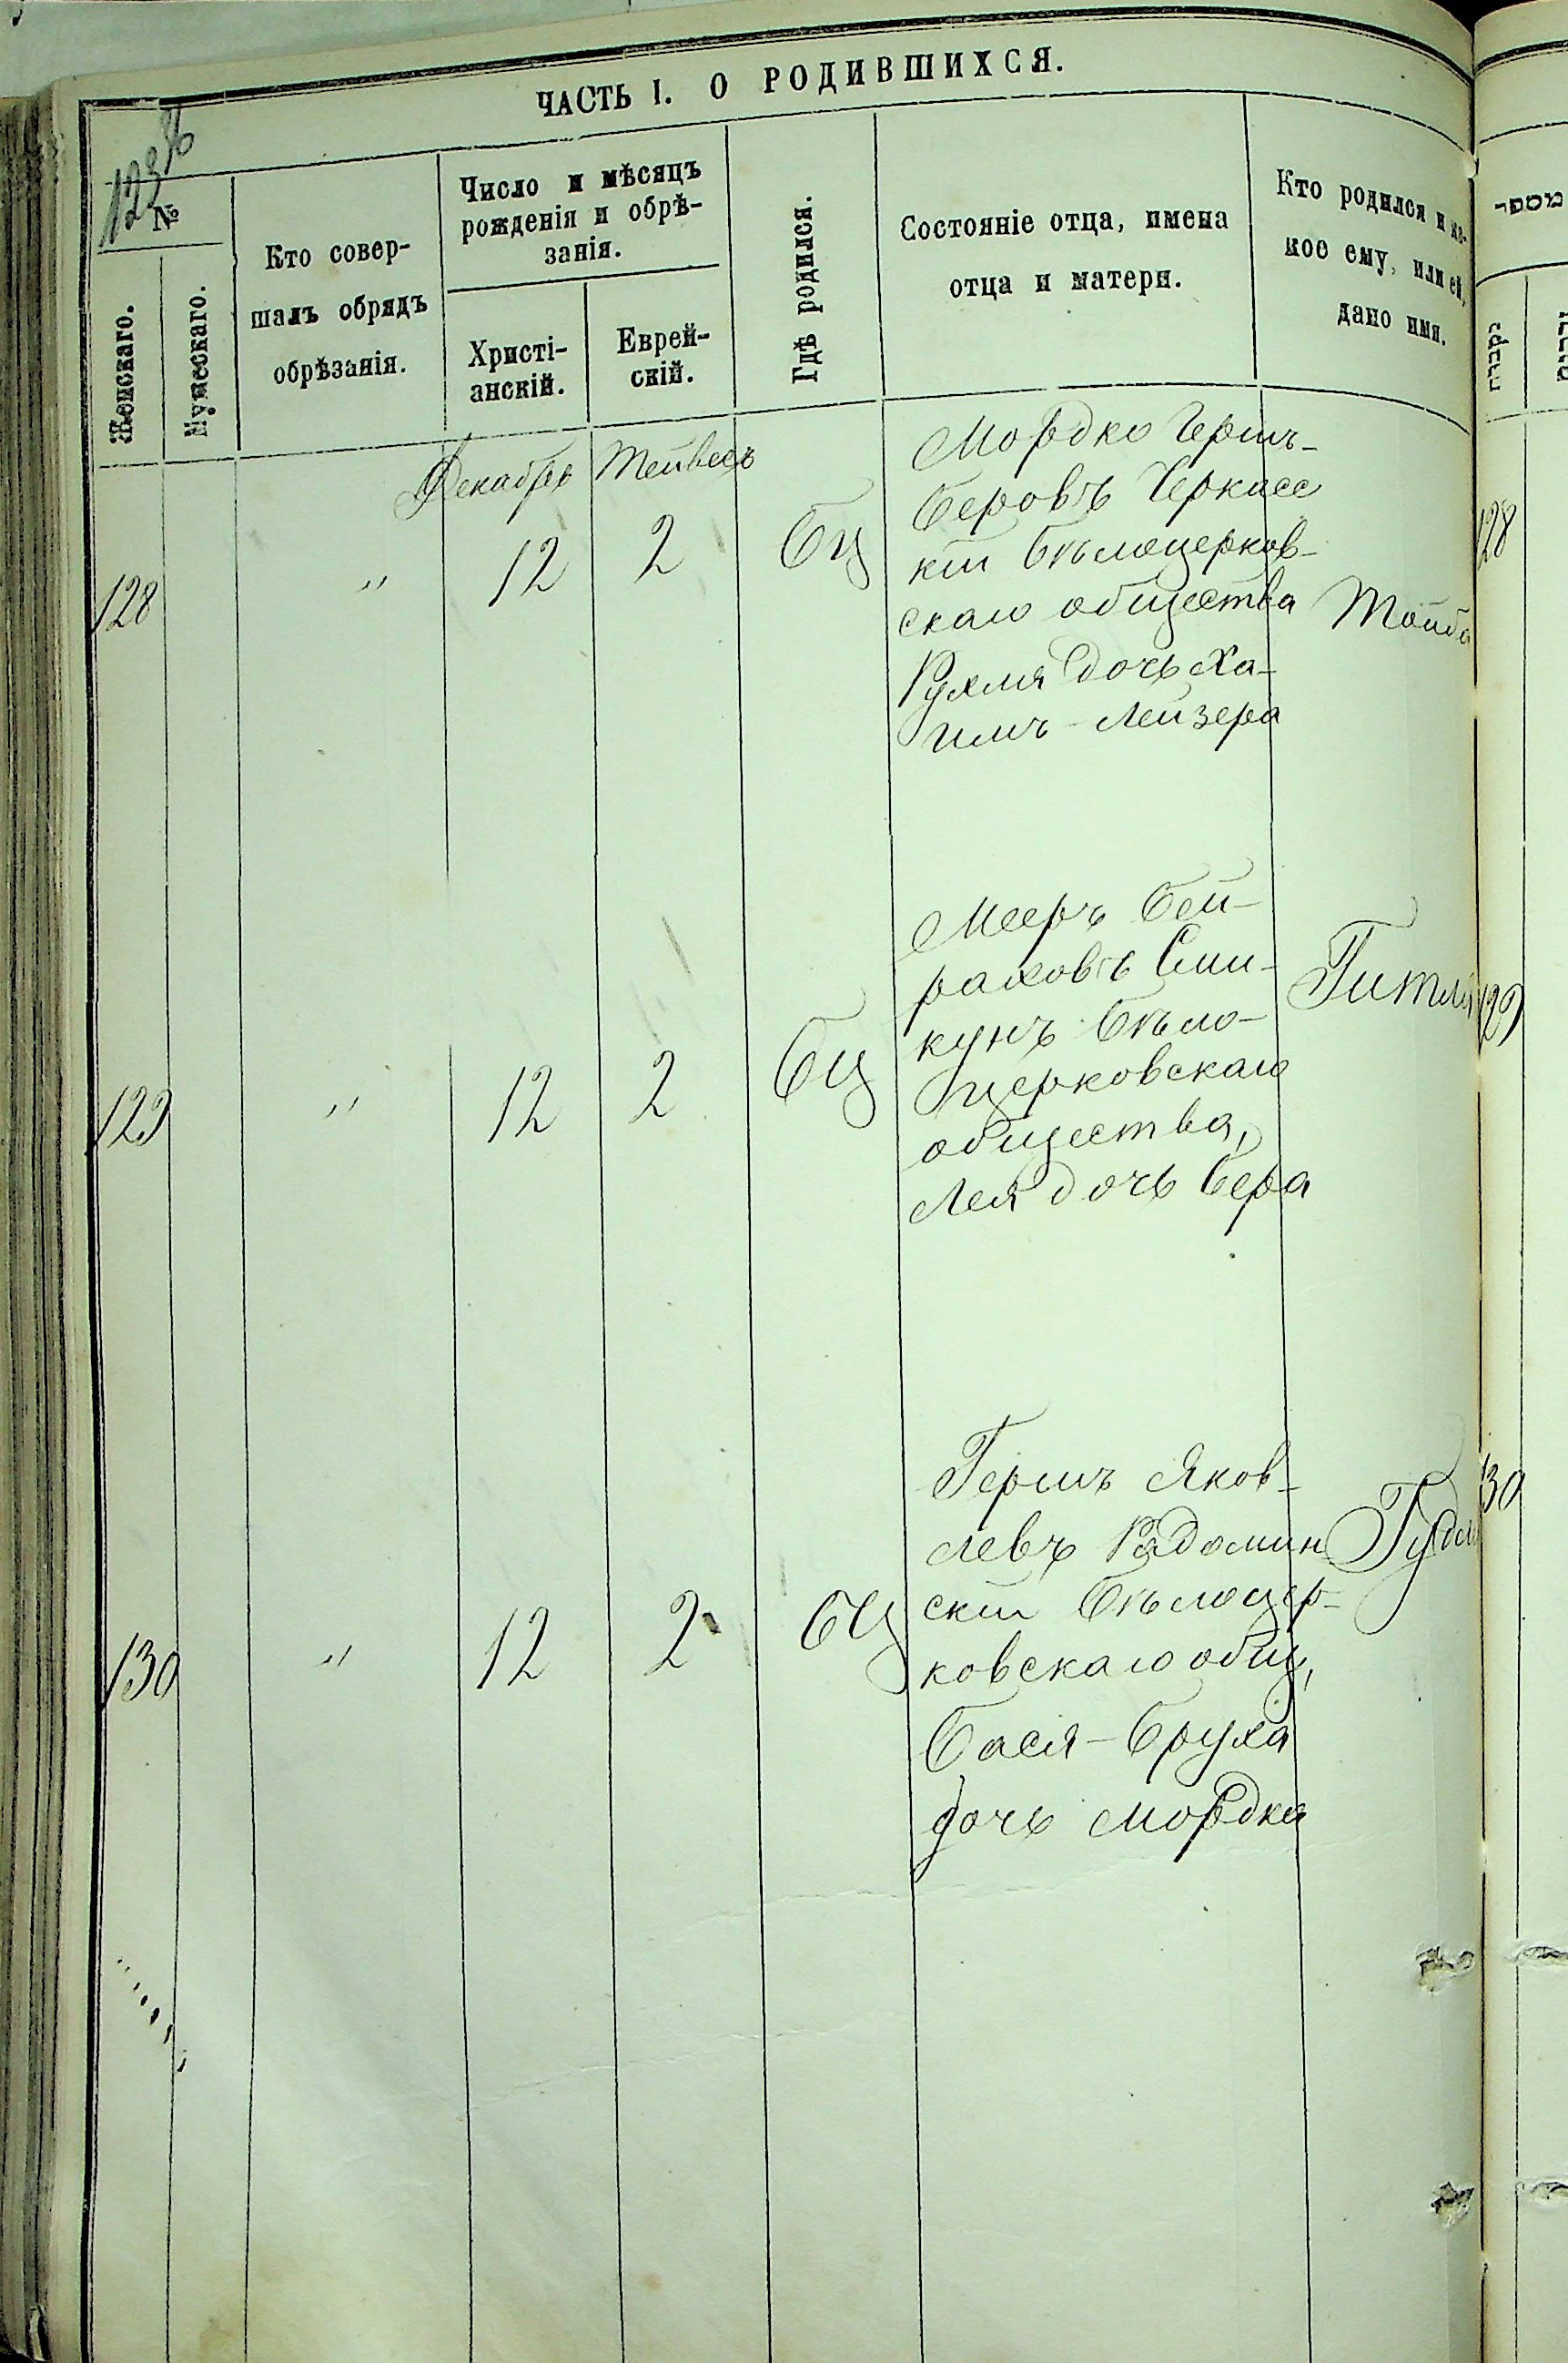 ЧАСТЬ I. О РОДИВШИХСЯ.
№
Женскаго.
Мужескаго.
Кто совер-
шалъ обрядъ
обрѣзанія.
Число и мѣсяцъ
рожденія и обрѣ-
занія.
Христі-
анскій.
Еврей-
скій.
Гдѣ родился.
Состояніе отца, имена
отца и матери.
Кто родился и ка-
кое ему, или ей,
дано имя.
מספר
נקבות
Декабрь Тейвесъ
128 " 12 2 БЦ
Мордко Герш-
Беровъ Черкасс
кій Бѣлоцерков-
скаго общества
Рухля дочь Ха-
имъ-Лейзера
Тойба
128
129 " 12 2 БЦ
Мееръ Бей-
раховъ Сми-
кунъ Бѣло-
церковскаго
общества,
Лея дочь Бера
Гитля
129
130 " 12 2 БЦ
Гершъ Яков-
левъ Радомин
скій Бѣлоцер-
ковскаго общ,
Бася-Бруха
дочь Мордка
130